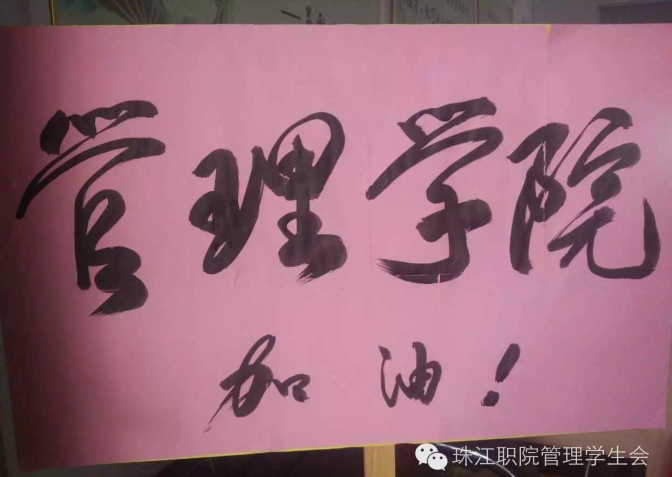 管理学院
加油！
珠江职院管理学生会